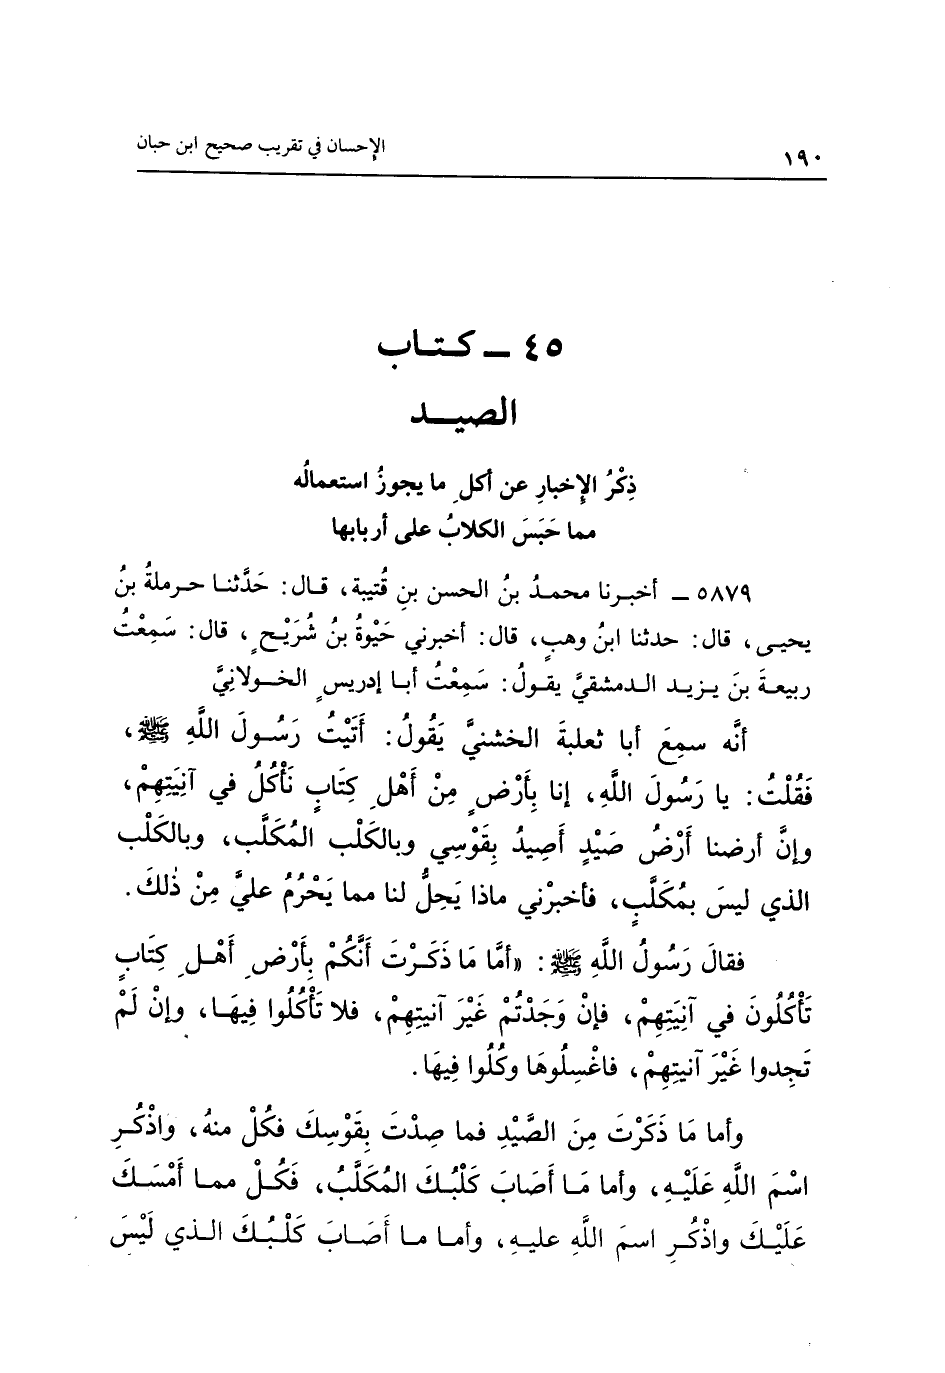 ١٩٠ الإحسان في تقريب صحيح ابن حبان
٤٥ ـ كتاب
الصيد
ذِكْرُ الإِخبارِ عن أكلِ ما يجوزُ استعمالُه
مما حَبَسَ الكلابُ على أربابها
٥٨٧٩ ـ أخبرنا محمدُ بنُ الحسن بنِ قُتيبة، قال: حَدَّثنا حرملةُ بنُ
يحيى، قال: حدثنا ابنُ وهبٍ، قال: أخبرني حَيْوةُ بنُ شُرَيْحٍ، قال: سَمِعْتُ
ربيعةَ بنَ يزيد الدمشقيَّ يقولُ: سَمِعْتُ أبا إدريسٍ الخولانيَّ
أنَّه سمِعَ أبا ثعلبةَ الخشنيَّ يَقُولُ: أَتَيْتُ رَسُولَ اللَّهِ ﷺ،
فَقُلْتُ: يا رَسُولَ اللَّهِ، إنا بِأَرْضٍ مِنْ أَهْلِ كِتَابٍ نَأْكُلُ في آنِيَتِهِمْ،
وإنَّ أرضنا أَرْضُ صَيْدٍ أَصِيدُ بِقَوْسِي وبالكَلْب المُكَلَّب، وبالكَلْب
الذي ليسَ بمُكَلَّبٍ، فأخبرْني ماذا يَحِلُّ لنا مما يَحْرُمُ عليَّ مِنْ ذٰلكَ.
فقالَ رَسُولُ اللَّهِ ﷺ: «أمَّا مَا ذَكَرْتَ أَنَّكُمْ بِأَرْضِ أَهْلِ كِتَابٍ
تَأْكُلُونَ في آنِيَتِهِمْ، فإنْ وَجَدْتُمْ غَيْرَ آنيتِهِمْ، فلا تَأْكُلُوا فِيهَا، وإنْ لَمْ
تَجِدوا غَيْرَ آنيتِهِمْ، فاغْسِلُوهَا وكُلُوا فِيهَا.
وأما مَا ذَكَرْتَ مِنَ الصَّيْدِ فما صِدْتَ بِقَوْسِكَ فكُلْ منهُ، واذْكُرِ
اسْمَ اللَّهِ عَلَيْهِ، وأما مَا أَصَابَ كَلْبُكَ المُكَلَّبُ، فَكُلْ مما أَمْسَكَ
عَلَيْكَ واذْكُرِ اسمَ اللَّهِ عليهِ، وأما ما أَصَابَ كَلْبُكَ الذي لَيْسَ